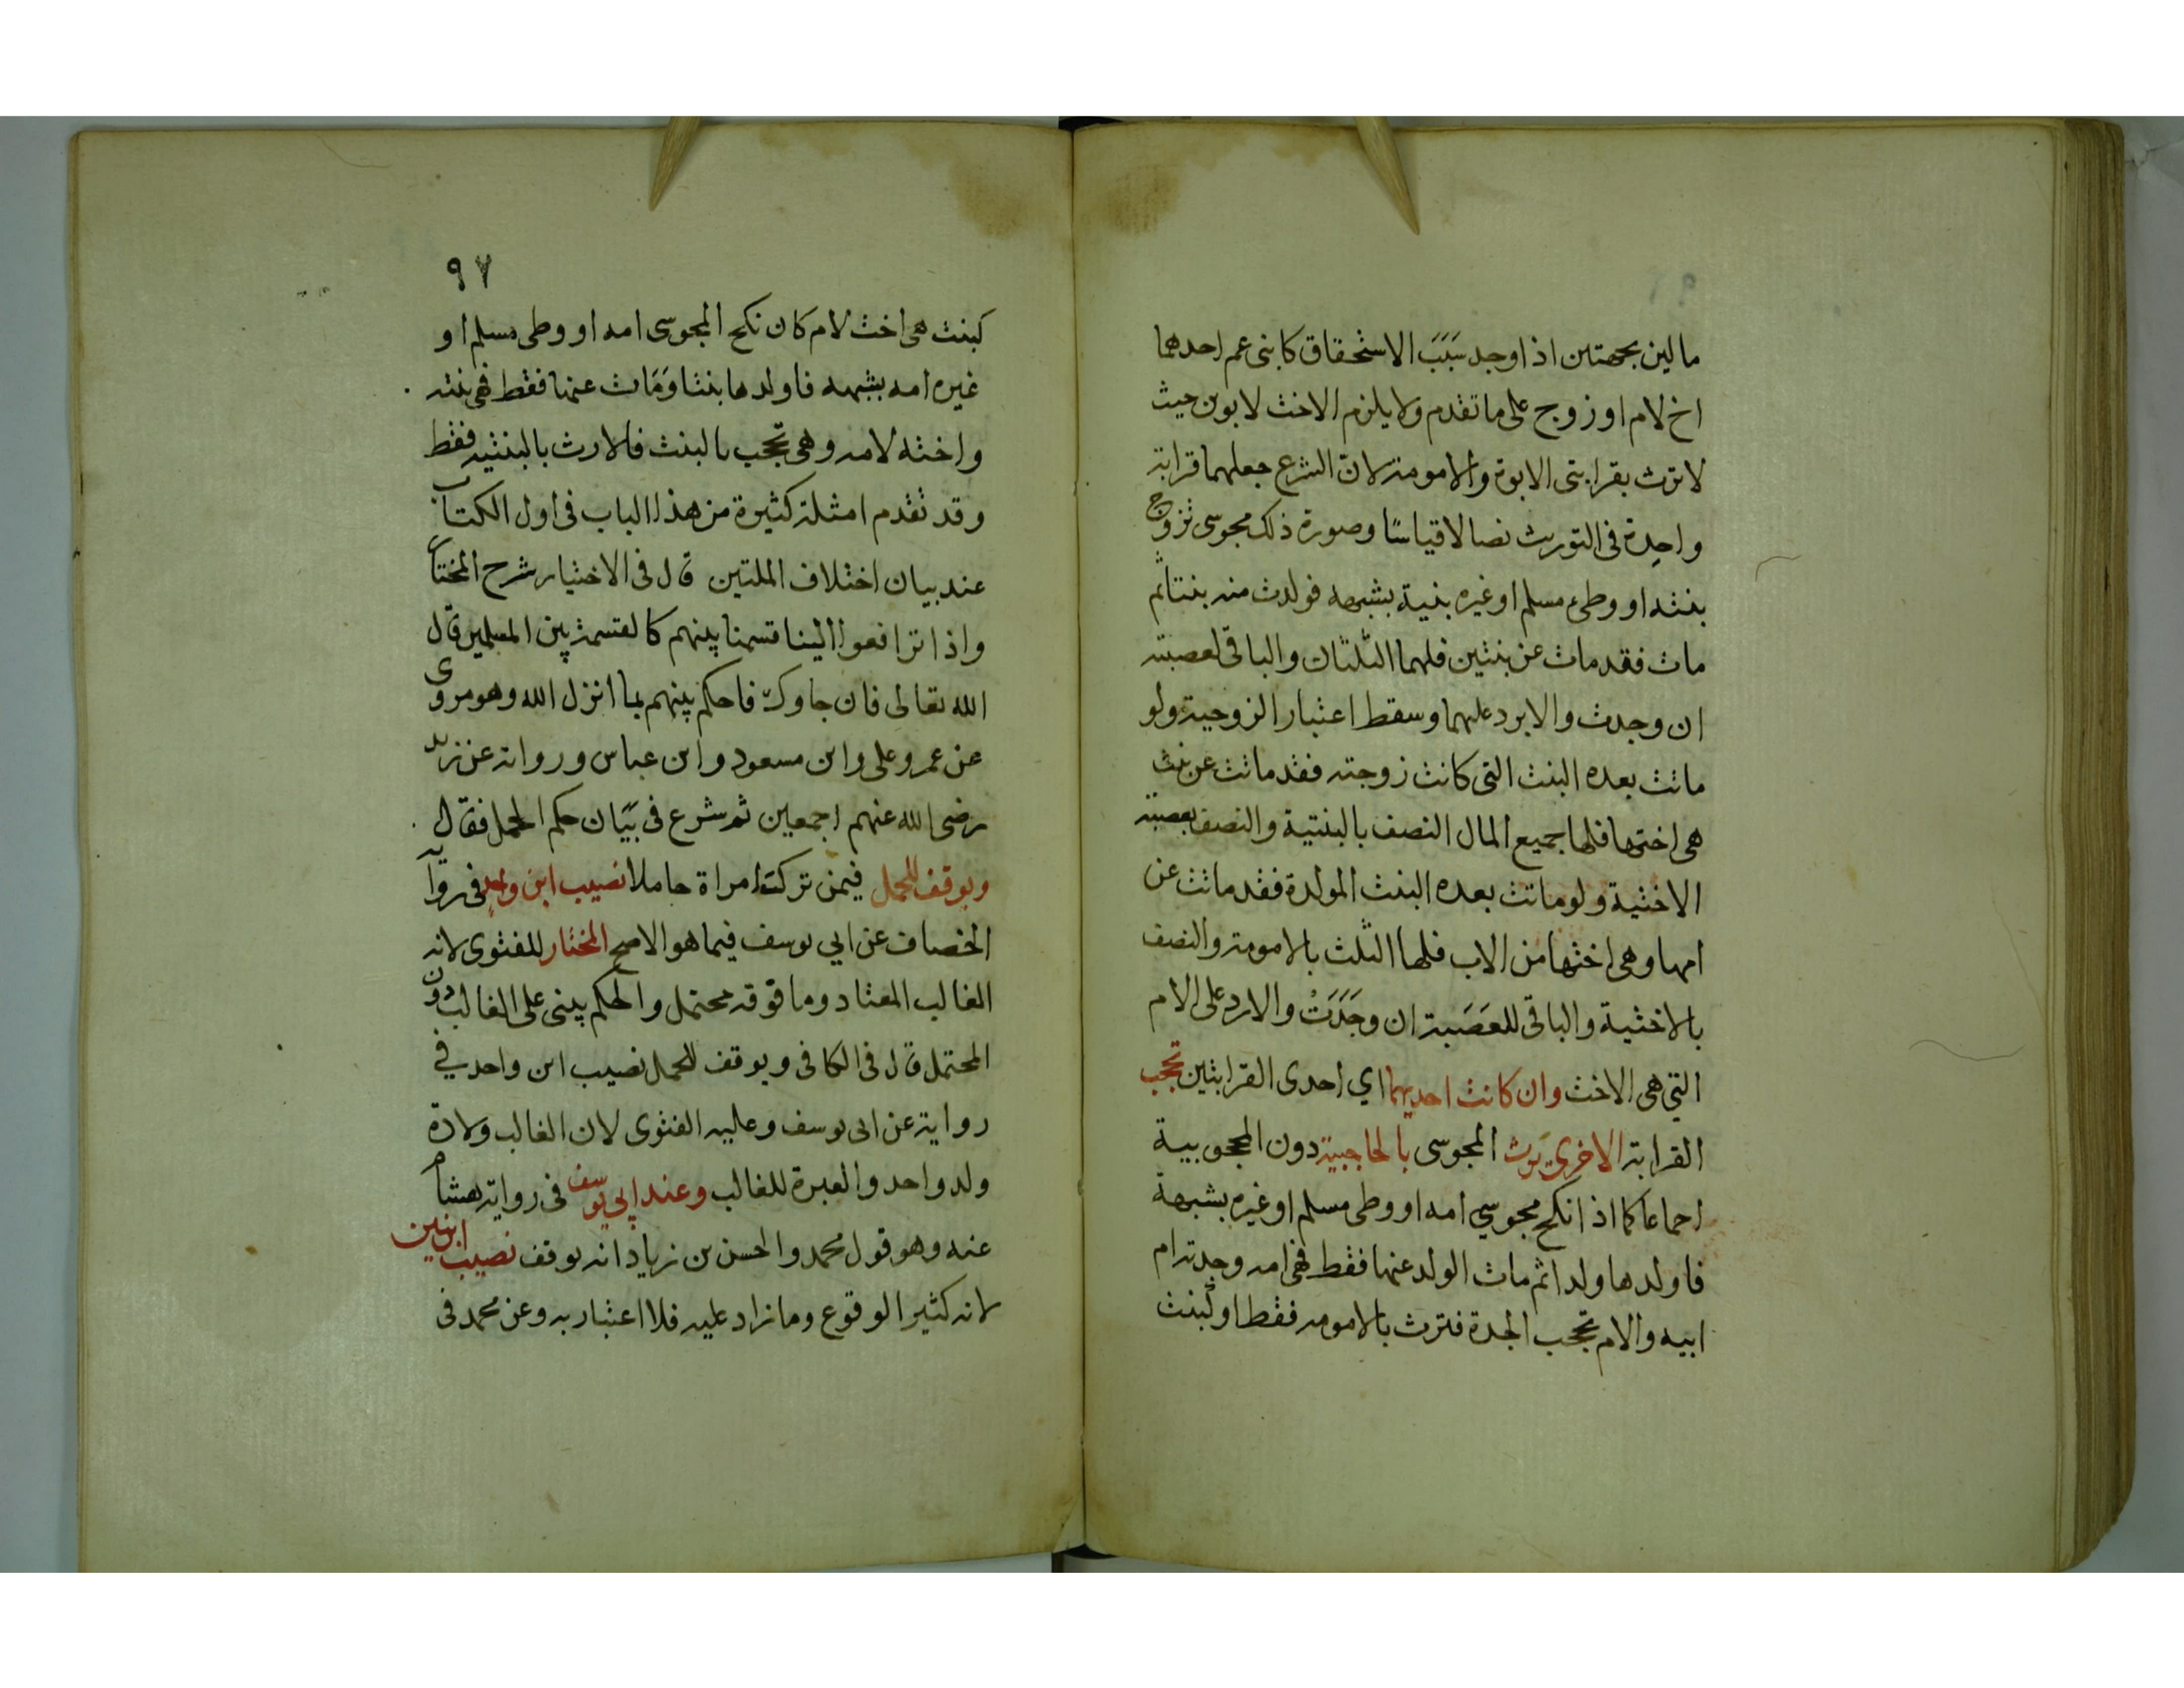 مالين بجهتين اذا وجد سَبَبَ الاستحقاق كابنى عم احدهما
اخ لام او زوج على ما تقدم ولا يلزم الاخت لابوين حيث
لا ترث بقرابتى الابوة والامومة لان الشرع جعلهما قرابة
واحدة فى التوريث نصا لا قياسًا وصورة ذلك مجوسى تزوج
بنته او وطىء مسلم او غيره بنية بشبهه فولدت منه بنتا ثم
مات فقد مات عن بنتين فلهما الثلثان والباقى لعصبته
ان وجدت والا يرد عليهما وسقط اعتبار الزوجية ولو
ماتت بعده البنت التى كانت زوجته فقد ماتت عن بنت
هى اختها فلها جميع المال النصف بالبنتية والنصف بعصبته
الاختية ولو ماتت بعده البنت المولدة فقد ماتت عن
امها وهى اختها من الاب فلها الثلث بالامومة والنصف
بالاختية والباقى للعَصَبة ان وجَدَتْ والا رد على الام
التى هى الاخت وان كانت احديهما اي احدى القرابتين تحجب
القرابة الاخرى يَرث المجوسى بالحاجبية دون المحجوبية
اجماعا كما اذا نكح مجوسي امه او وطى مسلم او غيره بشبهة
فاولدها ولدا ثم مات الولد عنها فقط فهى امه وجدته ام
ابيه والام تحجب الجدة فترث بالامومه فقط او كبنت
٩٧
كبنت هى اخت لام كان نكح المجوسى امه او وطى مسلم او
غيره امه بشبهه فاولدها بنتا وَمَات عنها فقط فهى بنته
واخته لامه وهى تحجب بالبنت فالارث بالبنتيه فقط
وقد تقدم امثلة كثيرة من هذا الباب فى اول الكتاب
عند بيان اختلاف الملتين قال فى الاختيار شرح المختار
واذا ترافعوا الينا قسمنا بينهم كالقسمة بين المسلمين قال
الله تعالى فان جاوك فاحكم بينهم بما انزل الله وهو مروى
عن عمر وعلى وابن مسعود وابن عباس ورواية عن زيد
رضى الله عنهم اجمعين ثم شرع فى بَيَان حكم الحمل فقال
ويوقف للحمل فيمن تركت امراة حاملا نصيب ابن واحد فى رواية
الخصاف عن ابي يوسف فيما هو الاصح المختار للفتوى لانه
الغالب المعتاد وما فوقه محتمل والحكم يبنى على الغالب دون
المحتمل قال فى الكافى ويوقف للحمل نصيب ابن واحد في
رواية عن ابى يوسف وعليه الفتوى لان الغالب ولادة
ولد واحد والعبرة للغالب وعند ابي يوسف فى رواية هشام
عنه وهو قول محمد والحسن بن زياد انه يوقف نصيب ابنين
لانه كثير الوقوع وما زاد عليه فلا اعتبار به وعن محمد فى